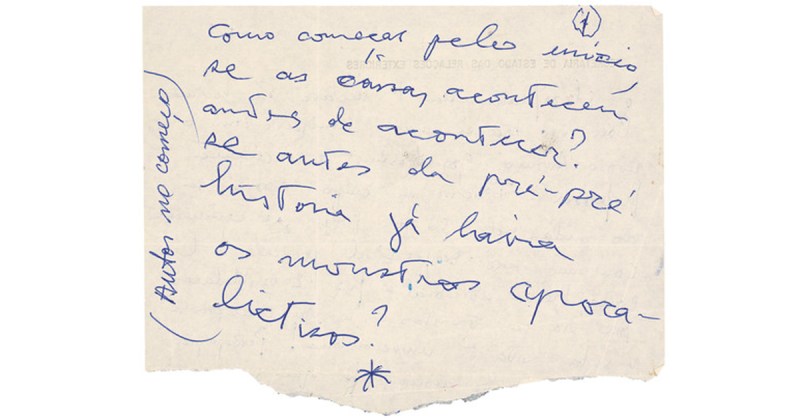 1
Como começar pelo início,
se as coisas acontecem
antes de acontecer?
se antes da pré-pré
história já havia
os monstros apoca-
lícticos?
*
(Autos no começo)
SECRETARIA DE ESTADO DAS RELAÇÕES EXTERIORES